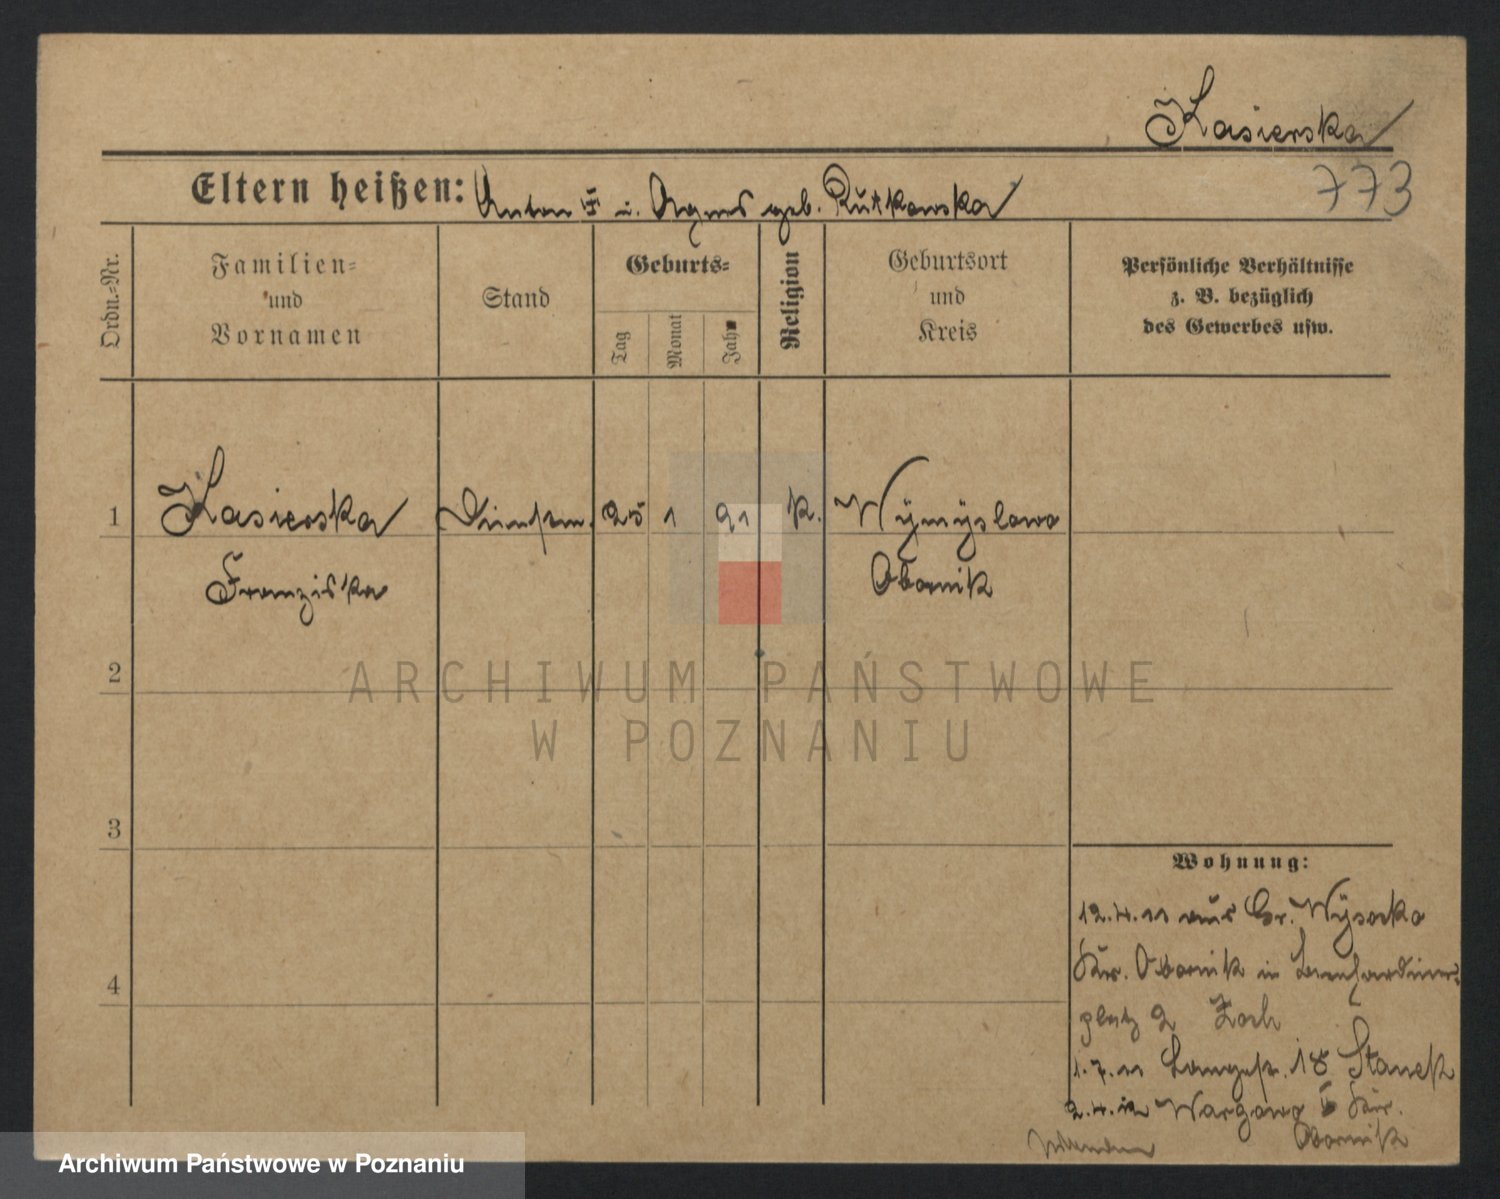 Kasierska
773
Eltern heißen: Anton u. Agnes geb. Rutkowska
Ordn.=Nr.
Familien=
und
Vornamen
Stand
Geburts=
Tag
Monat
Jahr
Religion
Geburtsort
und
Kreis
Persönliche Verhältnisse
z. B. bezüglich
des Gewerbes usw.
1
Kasierska
Franziska
Dienstm.
25
1
91
k.
Wymyslowo
Obornik
2
3
4
Wohnung:
12.4.11 aus Gr. Wysocko
Kr. Obornik in Bernhardiner=
platz 2 Zoch
1.7.11 Langestr. 18 Stanek
2.4.12 Wargowo Kr.
Obornik
ARCHIWUM PAŃSTWOWE
W POZNANIU
Archiwum Państwowe w Poznaniu